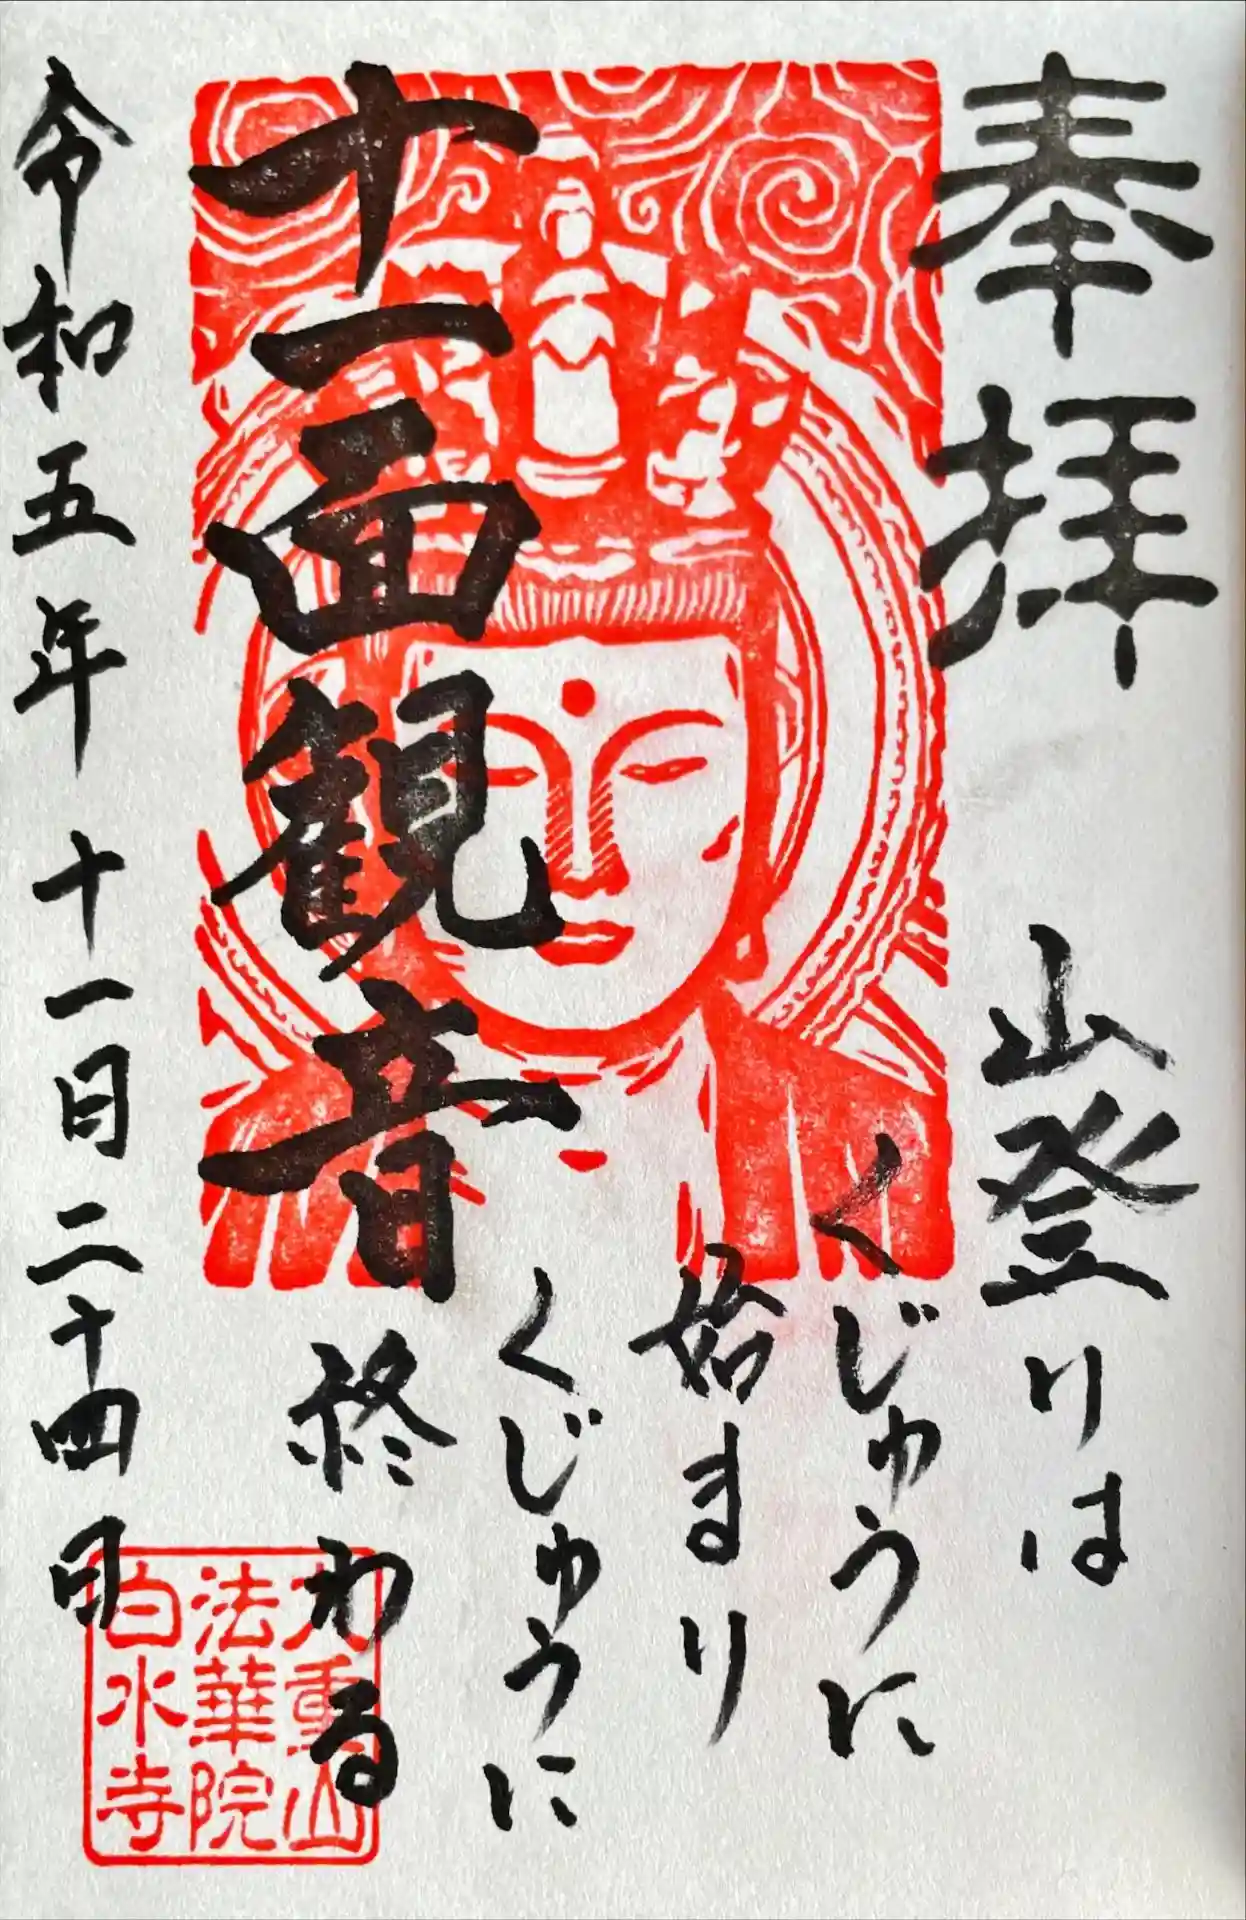 奉拝
山登りは
くじゅうに
始まり
くじゅうに
終わる
十一面観音
令和五年 十一月二十四日
九重山
法華院
白水寺